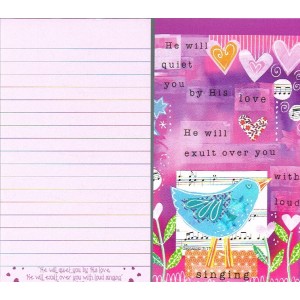 He will
quiet
you
by His
love
He will
exult over you
with
loud
singing
"He will quiet you by His love,
He will exult over you with loud singing"